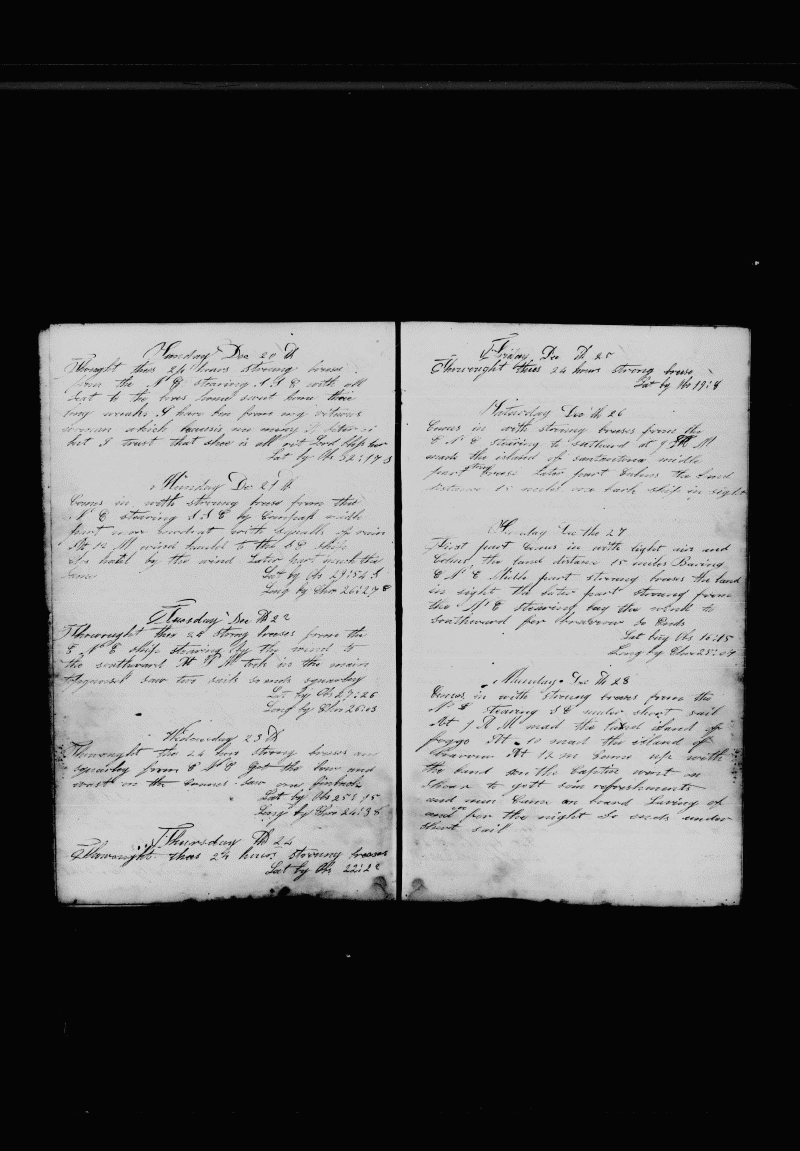 Sunday Dec 20 th
Throught thees 24 hours strong breses
from the N E stearing S S E with all
Seat to the bres home sweet home thee
long weaks I have ben from my
which causis me many a bitter
but I trust that shee is all rit Lord bless her
Lat by Obs 32:17
Munday Dec 21 th
Comes in with strong breses from the
N E stearing S S E by Compass midle
part with squalls of rain
At 10 M wind hauld to the S E Ship
by the wind Later part much the
same Lat by Obs 29:54
Long by Chro 26:27
Tuesday Dec th 22
Throwrought thees 24 strong breses from the
E N E Ship stearing by the wind to
the southward At P M took in the main
saw two sails so ends squarley
Lat by Obs 27:26
Long by Chro 26:03
Wednesday 23 th
Throwrought the 24 hors strong breses an
squarley from E N E Got the bow and
waist on the saw one finback
Lat by Obs 25:15
Long by Chro 24:38
Thursday th 24
Throwrought thees 24 hours strong breses
Lat by Obs 22:2
Friday Dec th 25
Throwrought thees 24 hours strong breses
Lat by Obs 19:8
Saturday Dec th 26
Comes in with strong breses from the
E N E stearing to southard at 9 A M
made the island of santantona midle
part strong breses later part Calms the land
distance 15 miles one bark ship in sight
Sunday Dec the 27
First part Comes in with light airs and
Calms the land distance 15 miles Baring
E N E Midle part strong breses the land
in sight the later part strong from
the N E stearing by the wind to
Southward for bravrow So Ends
Lat by Obs 16:15
Long by Chro 25:04
Munday Dec th 28
Comes in with strong breses from the
N E stearing S E under short sail
At 7 A M mad the island of
foggo At 10 mad the island of
bravow At 12 m Came up with
the land the Captin went in
Shoar to gett som refreshments
and Came on board Laving of
and on for the night So ends under
Short sail